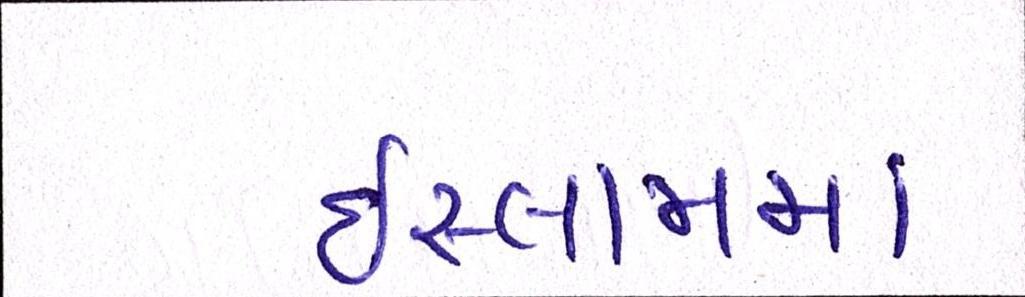 ઈસ્લામમાં